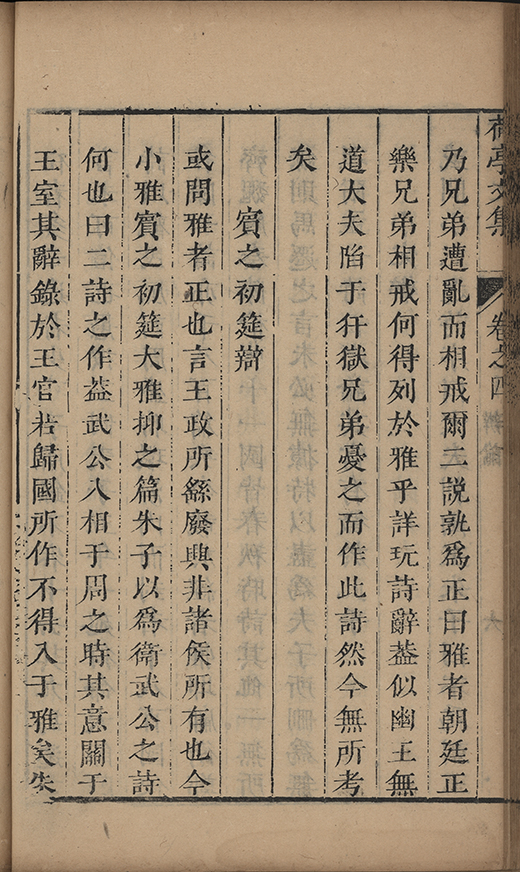 荷亭文集 卷之四 辨論
乃兄弟遭亂而相戒爾二説孰爲正曰雅者朝廷正
樂兄弟相戒何得列於雅乎詳玩詩辭葢似幽王無
道大夫陷于犴獄兄弟憂之而作此詩然今無所考
矣
賓之初筵辯
或問雅者正也言王政所繇廢興非諸侯所有也今
小雅賓之初筵大雅抑之篇朱子以爲衛武公之詩
何也曰二詩之作葢武公入相于周之時其意關于
王室其辭錄於王官若歸國所作不得入于雅矣朱